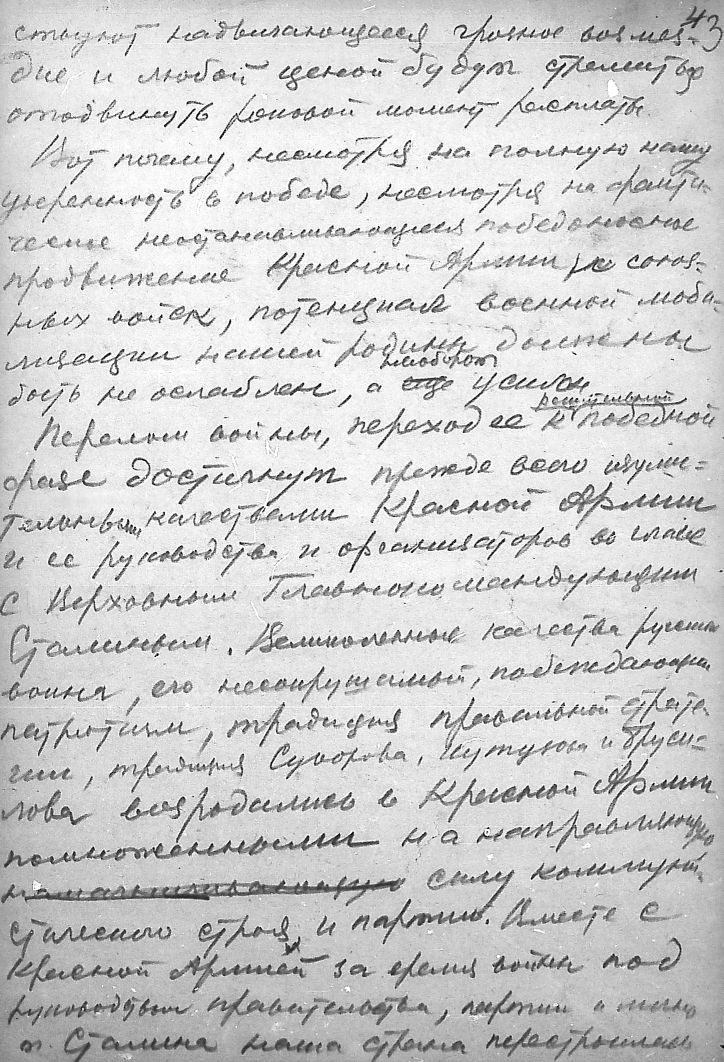 43
ствуют надвигающееся грозное возмез-
дие и любой ценой будут стремиться
отодвинуть роковой момент расплаты.
Вот почему, несмотря на полную нашу
уверенность в победе, несмотря на факти-
ческое неостанавливающееся победоносное
продвижение Красной Армии и союз-
ных войск, потенциал военной моби-
лизации нашей родины должен
наоборот
быть не ослаблен, а еще усилен
решительной
Перелом войны, переход ее к победной
фазе достигнут прежде всего изуми-
тельными качествами Красной Армии
и ее руководства и организаторов во главе
с Верховным Главнокомандующим
Сталиным. Великолепные качества русского
воина, его несокрушимый, побеждающий
патриотизм, традиция правильной страте-
гии, традиция Суворова, Кутузова и Бруси-
лова возродились в Красной Армии
помноженными на направляющую
силу коммуни-
стического строя и партии. Вместе с
Красной Армией за время войны под
руководством правительства, партии и лично
т. Сталина наша страна перестроилась